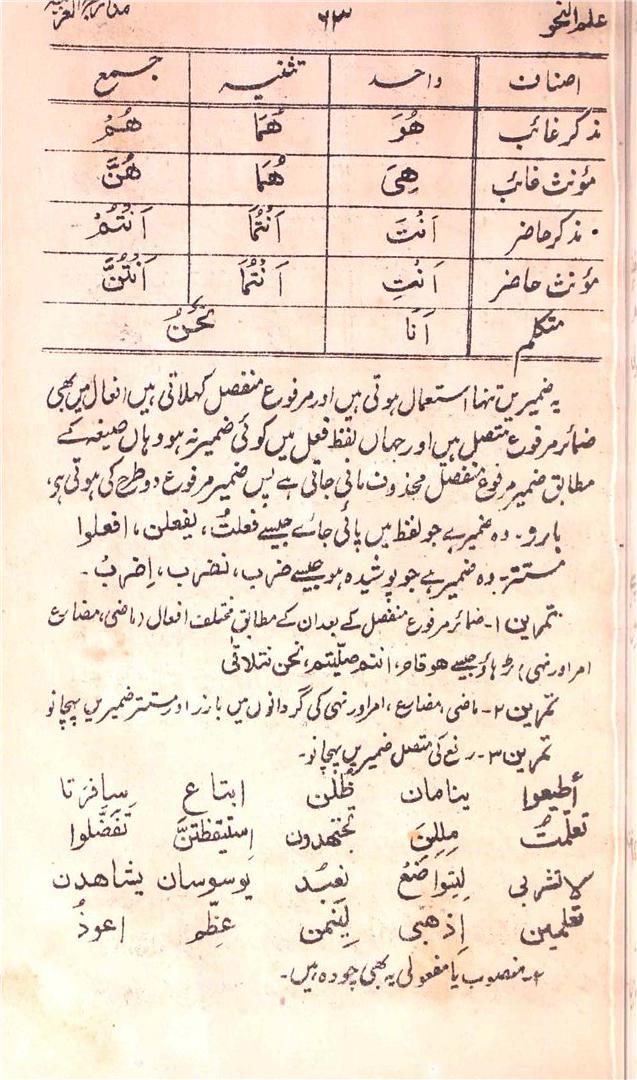 علم النحو ۶۳
اصناف واحد تثنیہ جمع
مذکر غائب هُوَ هُمَا هُمْ
مؤنث غائب هِيَ هُمَا هُنَّ
مذکر حاضر اَنْتَ اَنْتُمَا اَنْتُمْ
مؤنث حاضر اَنْتِ اَنْتُمَا اَنْتُنَّ
متکلم اَنَا نَحْنُ
یہ ضمیریں تنہا استعمال ہوتی ہیں اور مرفوع منفصل کہلاتی ہیں افعال میں بھی
ضمائر مرفوع متصل ہیں اور جہاں لفظ فعل میں کوئی ضمیر نہ ہو وہاں صیغہ کے
مطابق ضمیر مرفوع منفصل محذوف مانی جاتی ہے پس ضمیر مرفوع دو طرح کی ہوتی ہے،
بارز۔ وہ ضمیر ہے جو لفظ میں پائی جائے جیسے فعلتُ، یفعلن، افعلوا
مستتر۔ وہ ضمیر ہے جو پوشیدہ ہو جیسے ضرب، نضرب، اِضربْ۔
تمرین ۱۔ ضمائر مرفوع منفصل کے بعد ان کے مطابق مختلف افعال (ماضی، مضارع
امر اور نہی) بڑھاؤ جیسے هو قام، انتم صلّیتم، نحن نتلاقٰی
تمرین ۲۔ ماضی، مضارع، امر اور نہی کی گردانوں میں بارز اور مستتر ضمیریں پہچانو
تمرین ۳۔ رفع کی متصل ضمیریں پہچانو۔
أطیعوا ینامان قُلن ابتاع سافرتا
تعلّمتُ مللِنَ تجتهدون اِستیقظتنَّ تفضّلوا
لا تشربی لیتواضَعْ نعبُد یوسوسان یشاهدن
تعلمین اِذهبی لِیَنمن عظِّم اعوذُ
۲۔ منصوب یا مفعولی یہ بھی چودہ ہیں۔